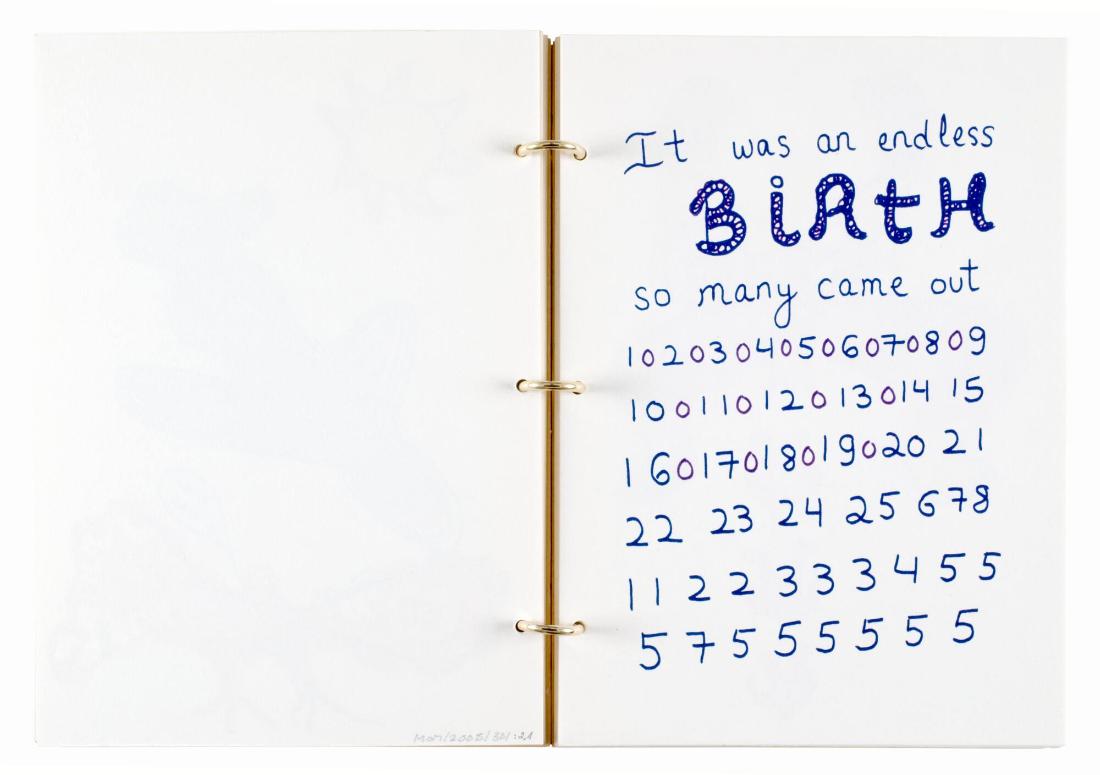 It was an endless
BiRtH
so many came out
10203040506070809
10 0 11 0 12 0 13 0 14 15
16 0 17 0 18 0 19 0 20 21
22 23 24 25 6 7 8
1 1 2 2 3 3 3 4 5 5
5 7 5 5 5 5 5